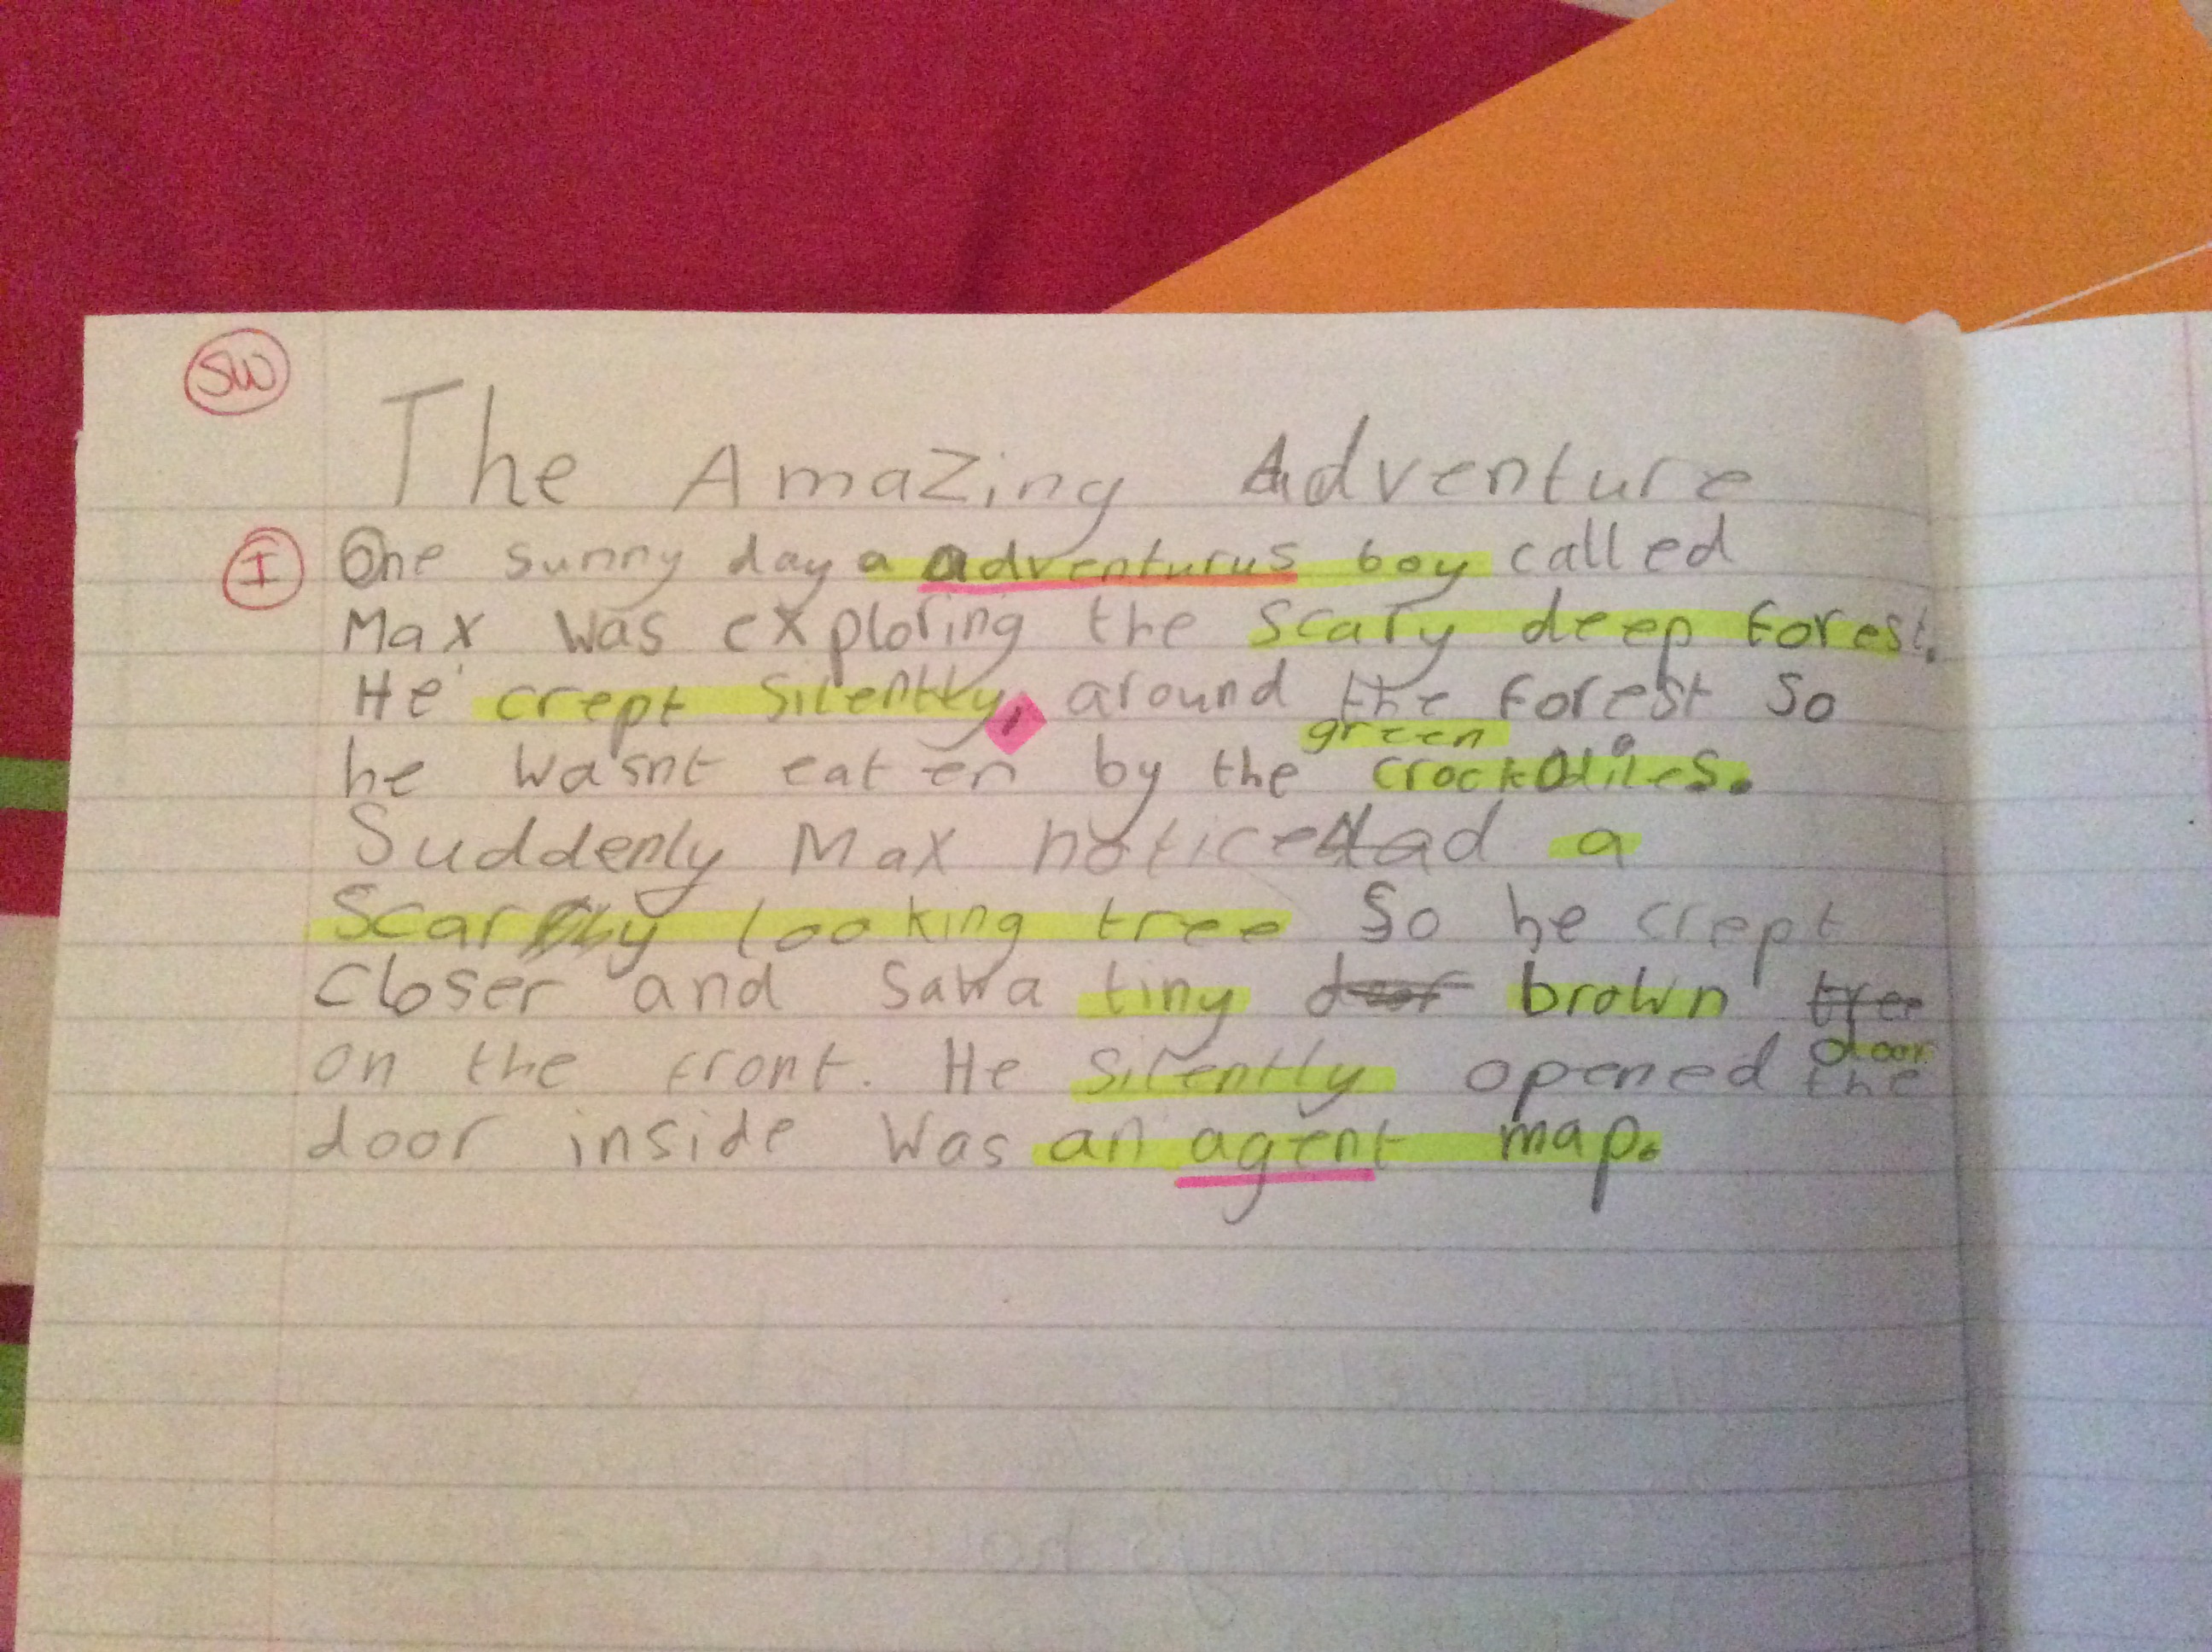 SW
The Amazing Adventure
I
One sunny day a adventurus boy called
Max was exploring the scary deep forest.
He crept silently, around the forest so
green
he wasnt eaten by the crockodiles.
Suddenly Max noticed a
Scary looking tree so he crept
closer and saw a tiny door brown tree
door
on the front. He silently opened the
door inside was an agent map.